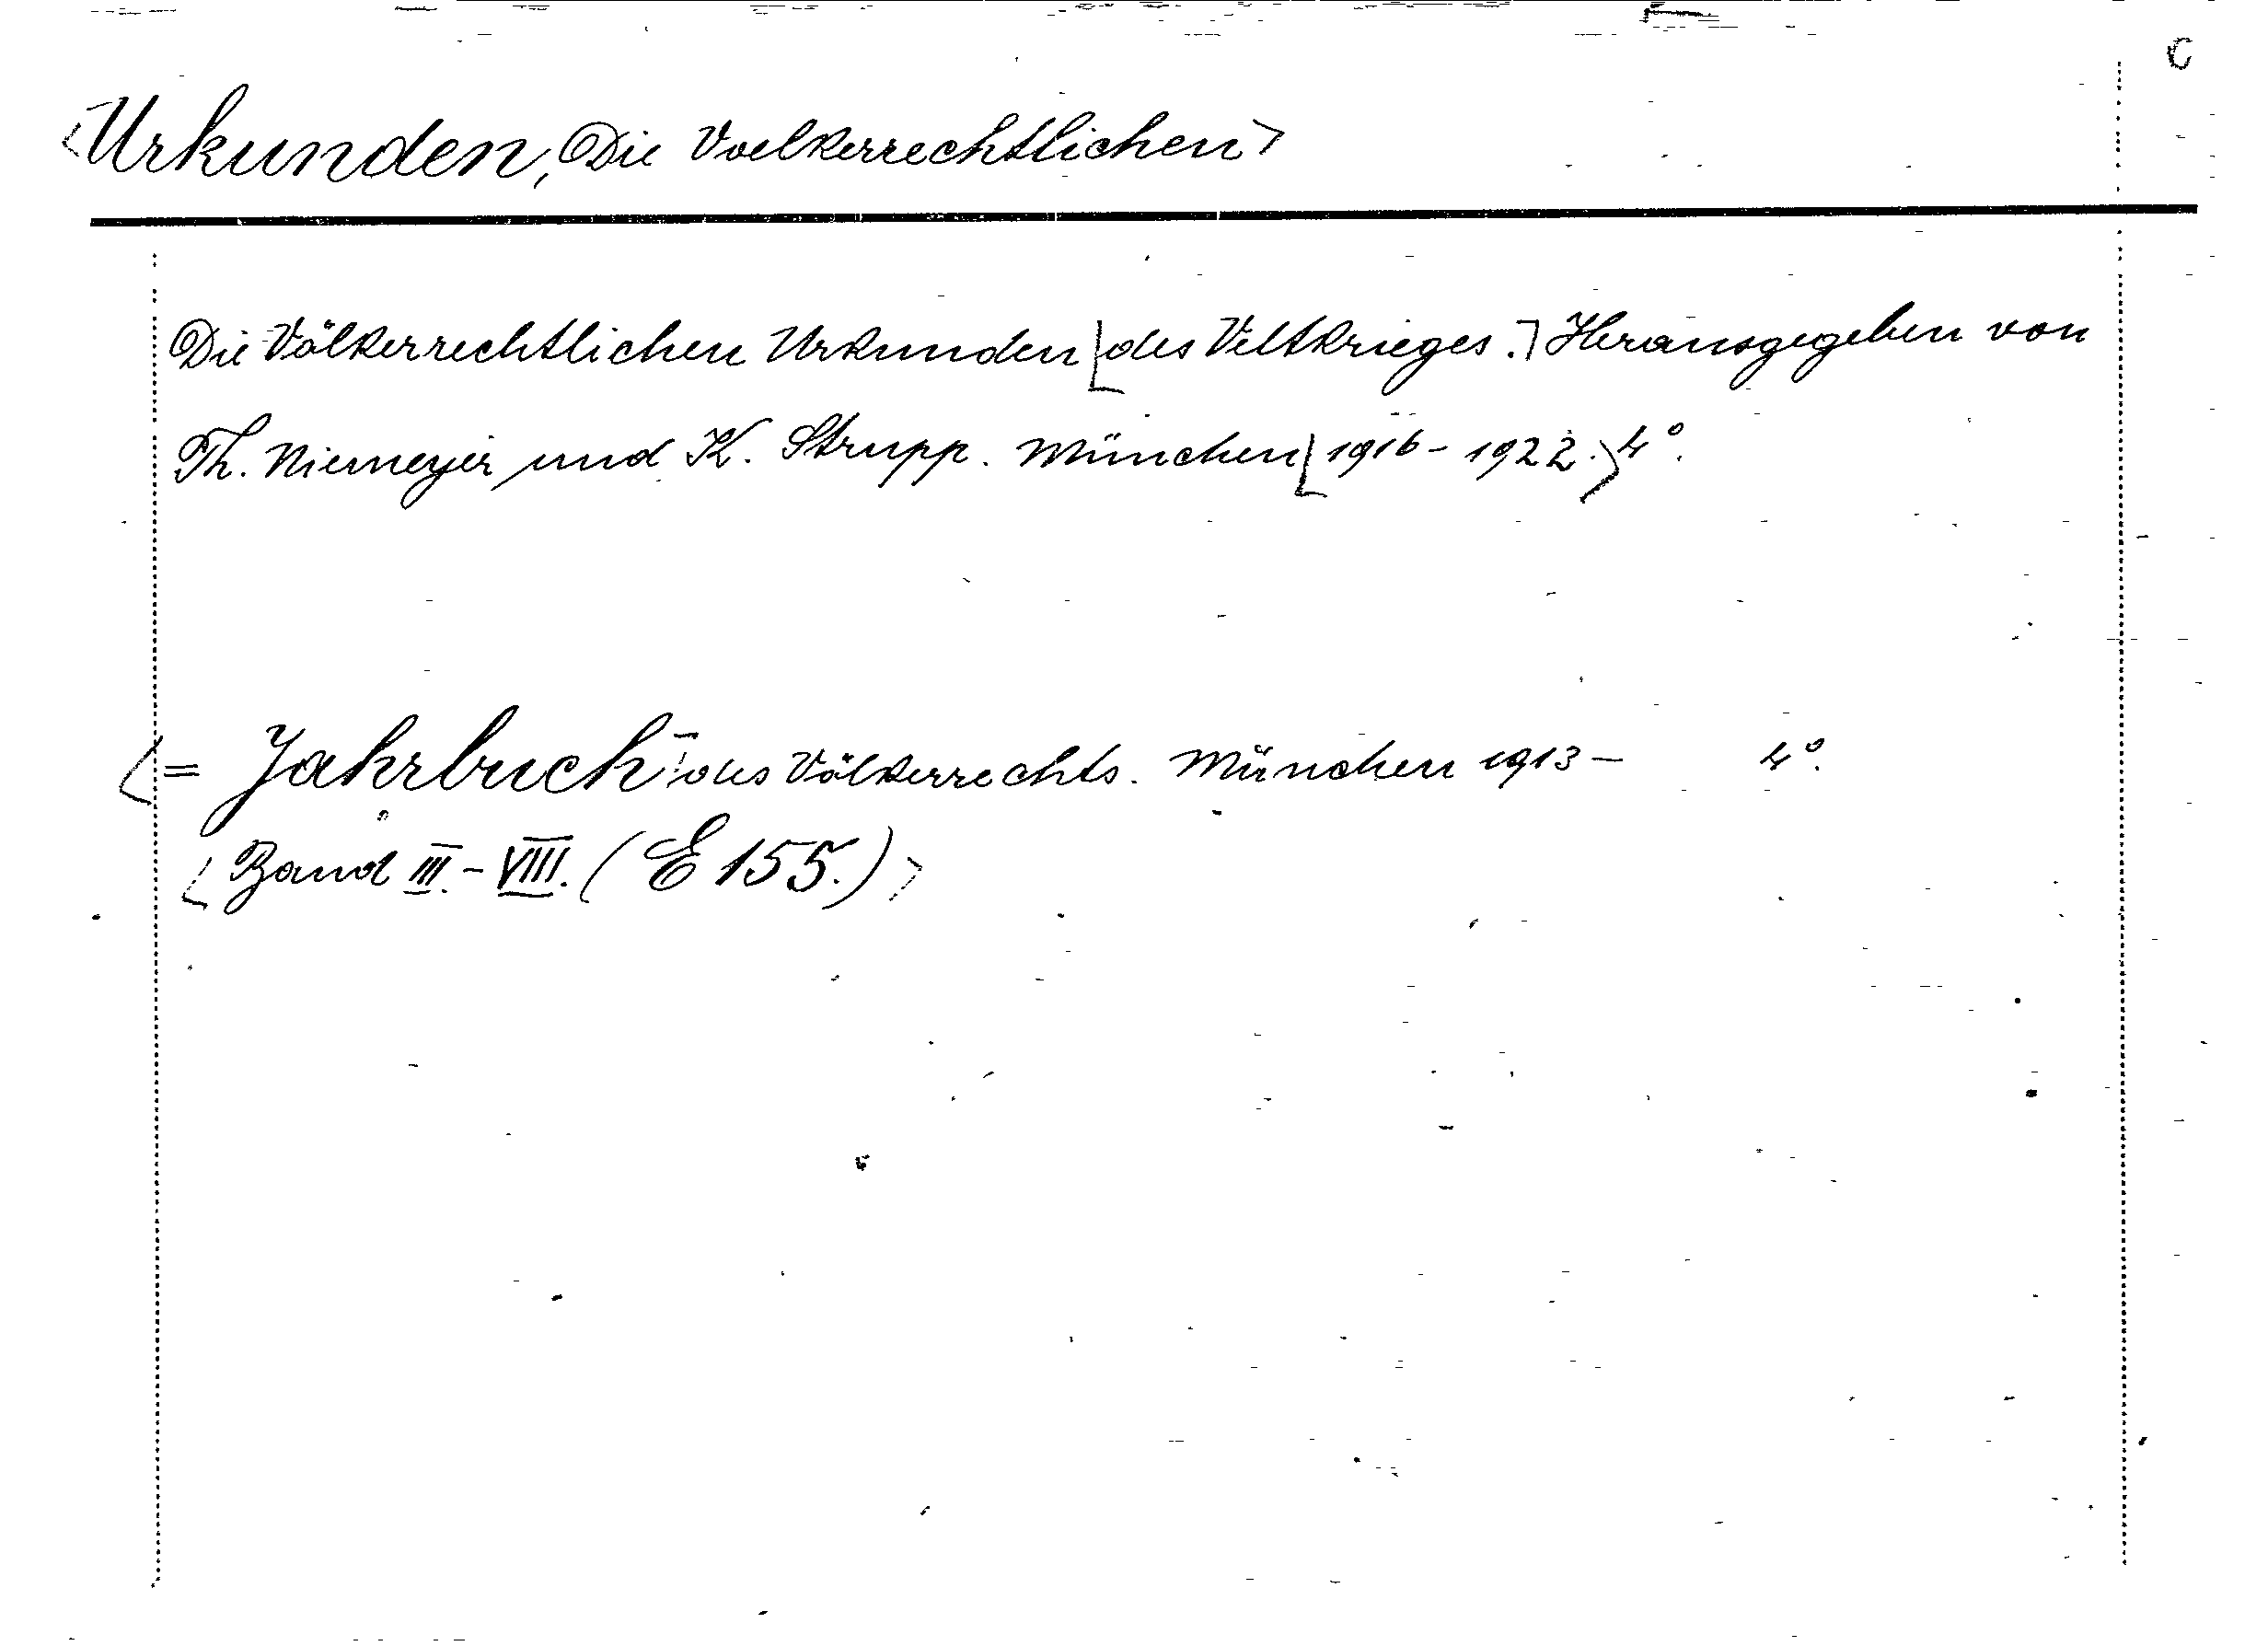 C
<Urkunden, Die Voelkerrechtlichen>
Die Völkerrechtlichen Urkunden [des Weltkrieges.] Herausgegeben von
Th. Niemeyer und K. Strupp. München [1916-1922.) 4°.
<= Jahrbuch des Völkerrechts. München 1913- 4°.
<Band III.-VIII. (E 155.)>